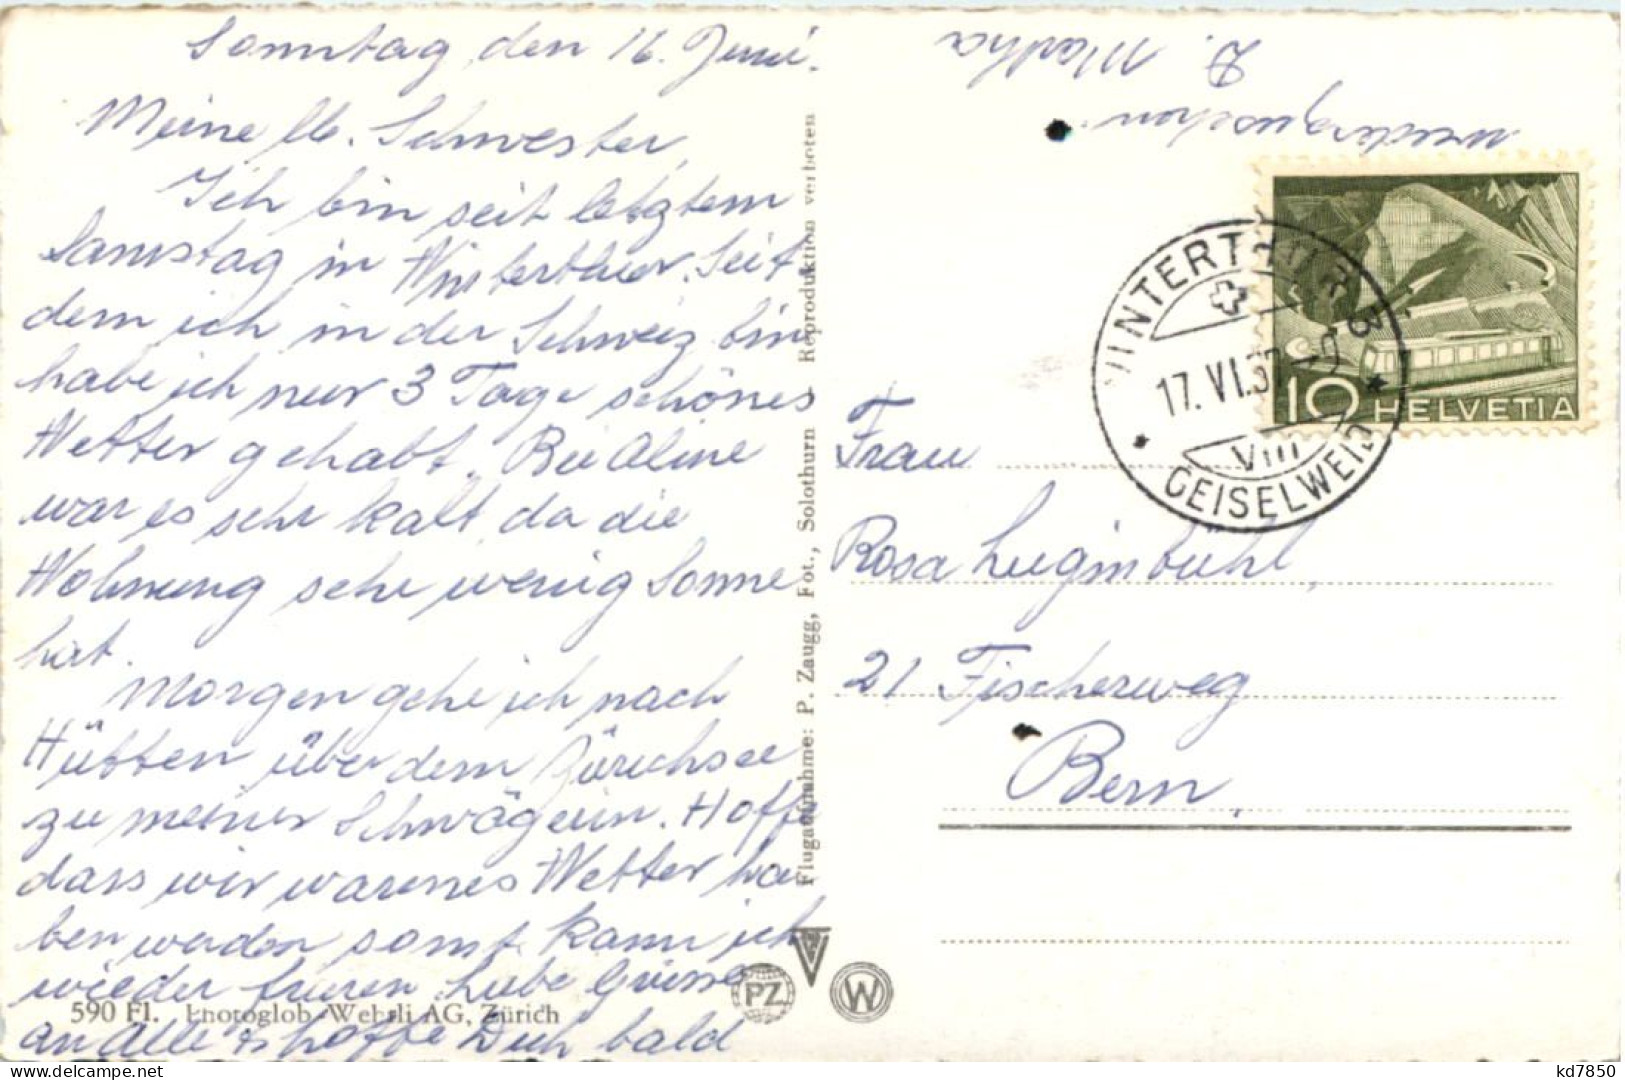 Sonntag, den 16. Juni.
Meine lb. Schwester,
Ich bin seit letztem
Samstag in Winterthur. Seit
dem ich in der Schweiz bin
habe ich nur 3 Tage schönes
Wetter gehabt. Bei Aline
war es sehr kalt, da die
Wohnung sehr wenig Sonne
hat.
Morgen gehe ich nach
Hütten über dem Zürichsee
zu meiner Schwägerin. Hoffe
dass wir warmes Wetter ha
ben werden sonst kann ich
wieder frieren. Liebe Grüsse
an Alle & hoffe Dich bald
wiederzusehen.
D. Martha
590 Fl. Photoglob-Wehrli AG, Zürich
Flugaufnahme: P. Zaugg, Fot., Solothurn Reproduktion verboten
PZ
W
WINTERTHUR 3
17. VI. 57
VIII
GEISELWEID
10 HELVETIA
Frau
Rosa Luginbühl,
21 Fischerweg
Bern.
kd7850